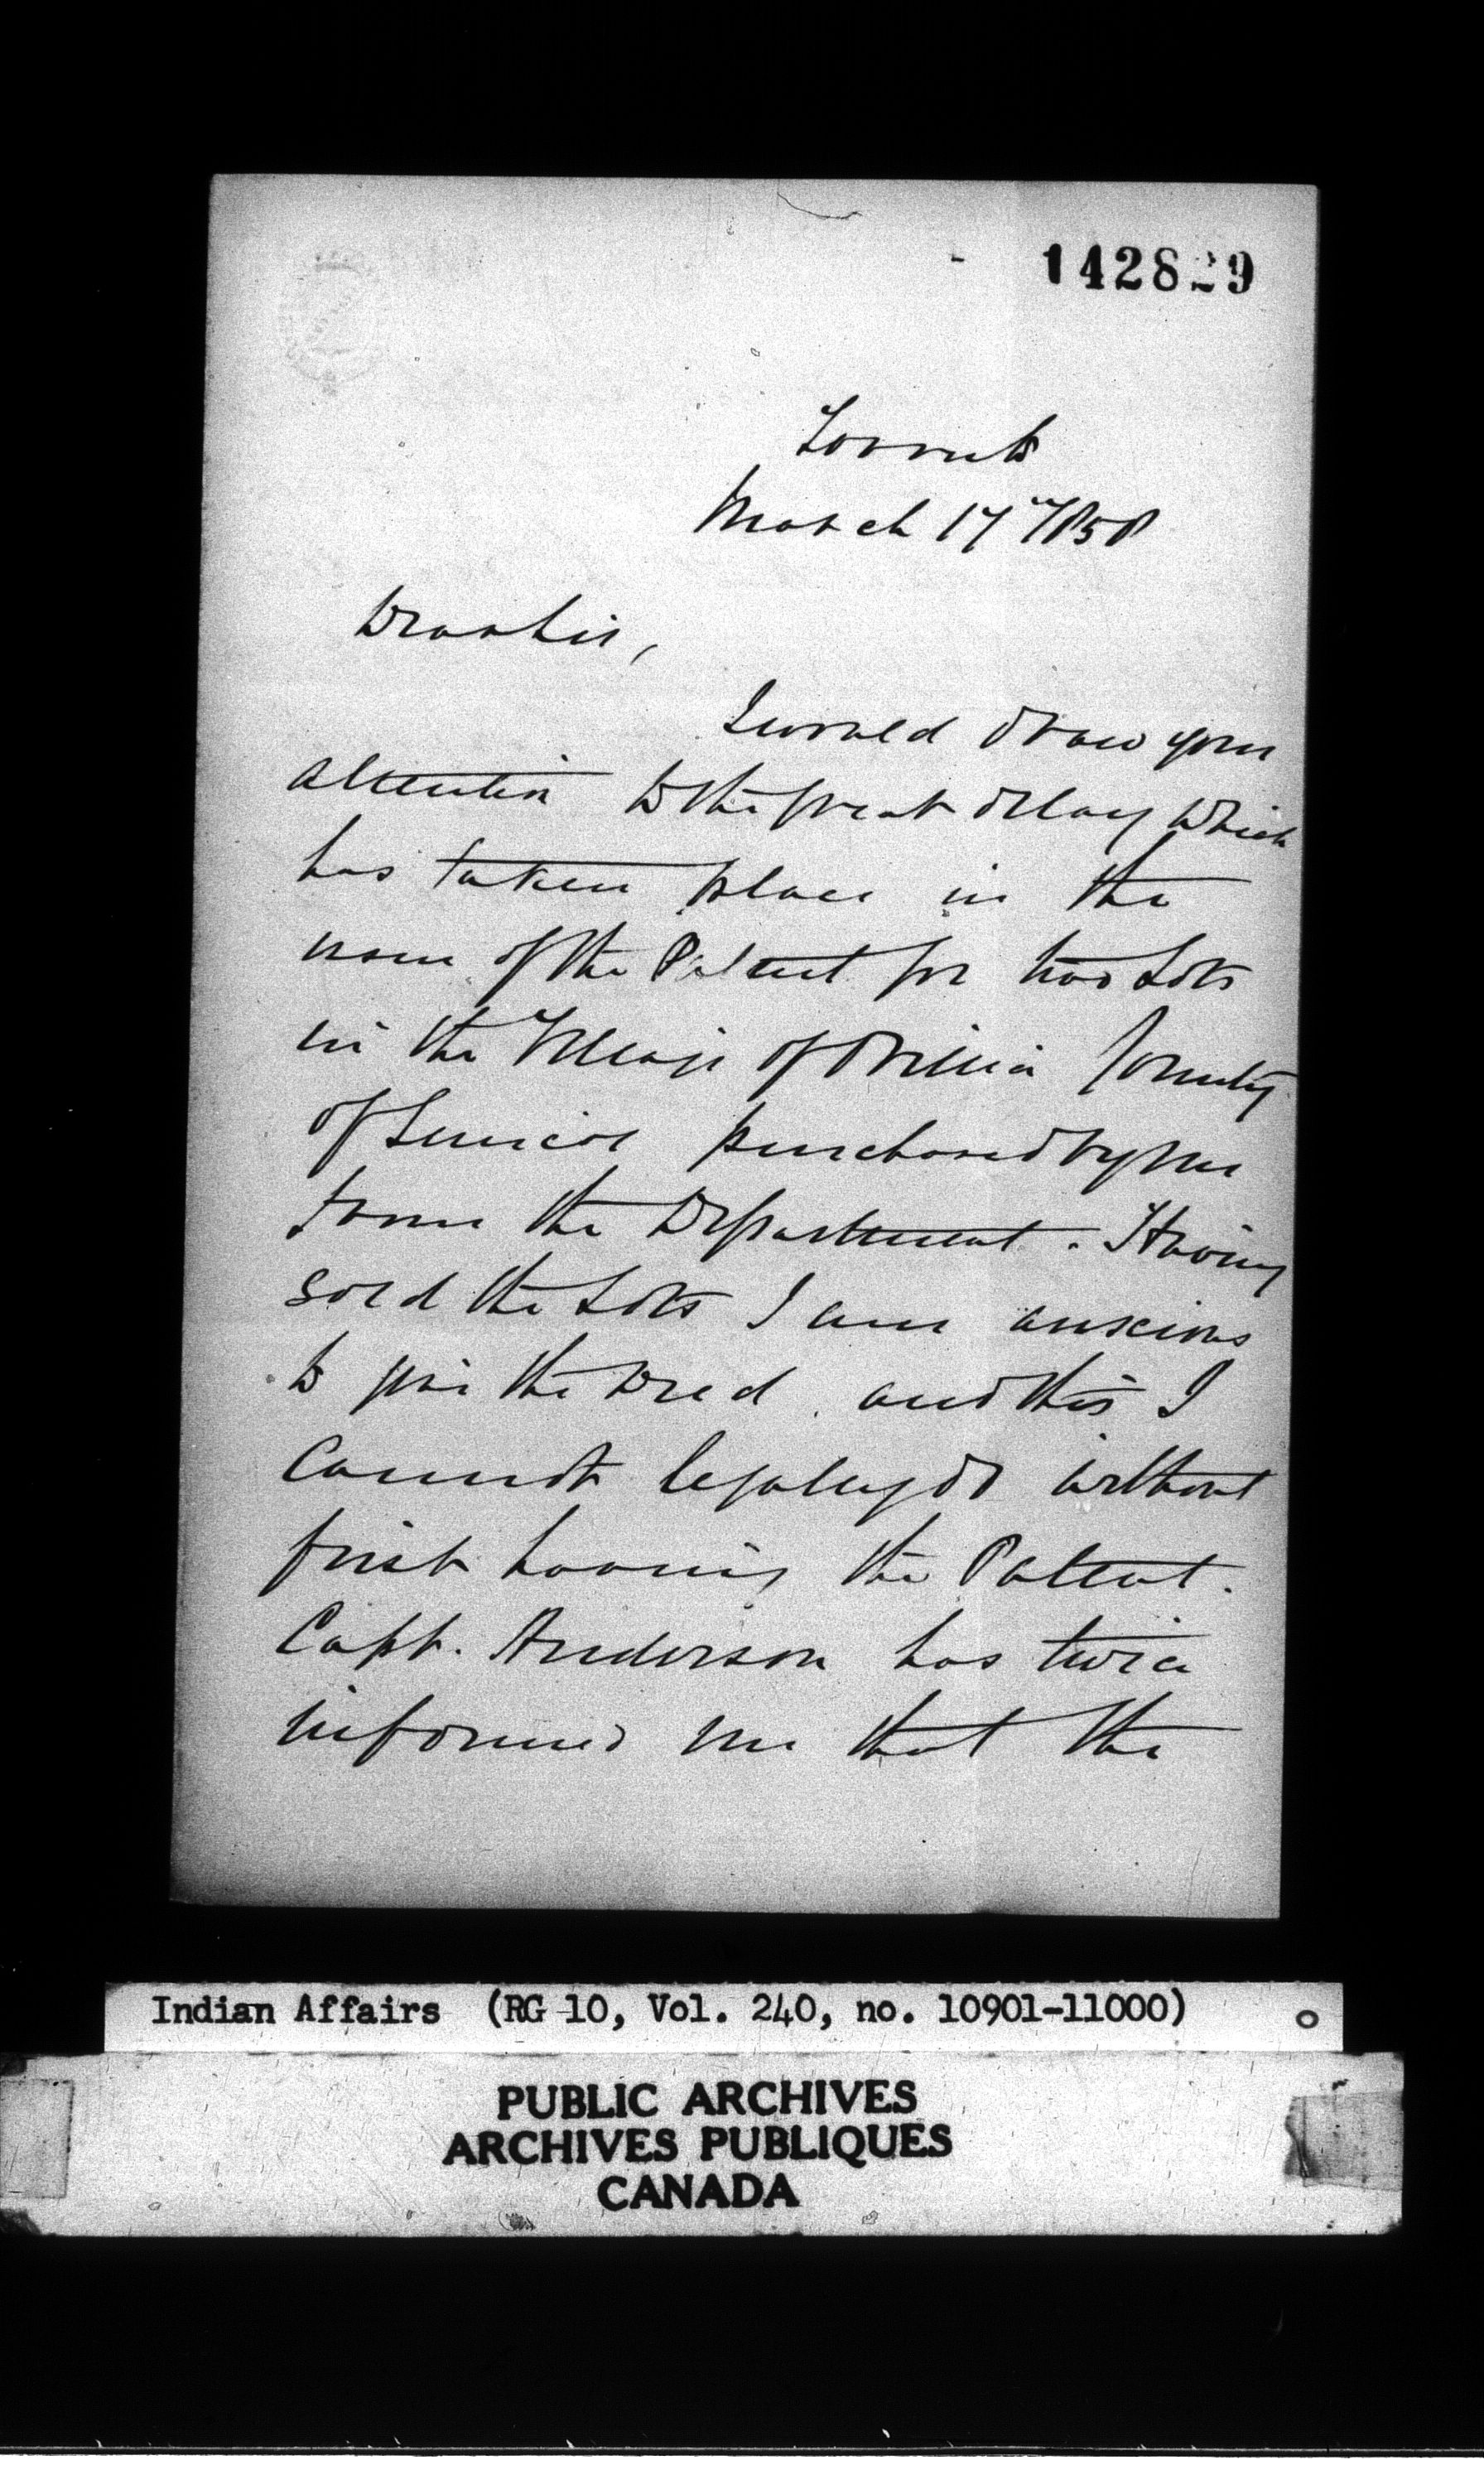 142829
Toronto
March 17th 1858
Dear Sir,
I would draw your
attention to the great delay which
has taken place in the
issue of the Patent for two Lots
in the Village of Orillia County
of Simcoe purchased by me
from the Department. Having
sold the Lots I am anxious
to give the Deed and this I
cannot legally do without
first having the Patent.
Capt. Anderson has twice
informed me that the
Indian Affairs (RG 10, Vol. 240, no. 10901-11000)
PUBLIC ARCHIVES
ARCHIVES PUBLIQUES
CANADA